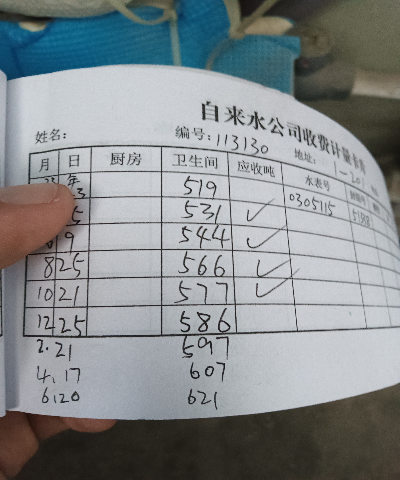 自来水公司收费计量卡
姓名： 编号：113130 地址：1-201
月 日 厨房 卫生间 应收吨 水表号
23 年 519 0305115
3 5 531 ✓
9 544 ✓
8 25 566 ✓
10 21 577 ✓
12 25 586
2.21 597
4.17 607
6.20 621